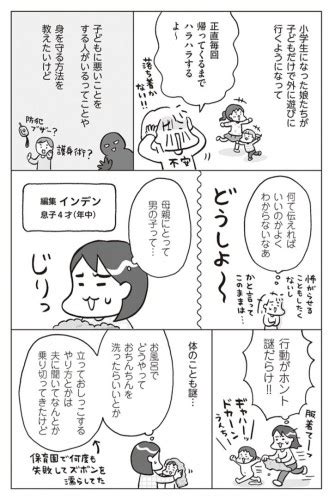 小学生になった娘たちが
子どもだけで外に遊びに
行くようになって
正直毎回
帰ってくるまで
ハラハラする
よ〜
落ち着か
ない!!
不安
子どもに悪いことを
する人がいるってことや
身を守る方法を
教えたいけど
防犯
ブザー?
護身術?
何て伝えれば
いいのかよく
わからないなぁ
怖がらせる
こともしたく
ないし
かと言って
このままは…
どうしよ〜
母親にとって
男の子って…
編集 インデン
息子4才(年中)
じりっ
行動がホント
謎だらけ!!
服着てーっ
ギャハー
ドカーン
うんちー!
体のことも謎…
お風呂で
どうやって
おちんちんを
洗ったらいいとか
立っておしっこする
やり方とかは
夫に聞いてなんとか
乗り切ってきたけど
保育園で何度も
失敗してズボンを
濡らしてた